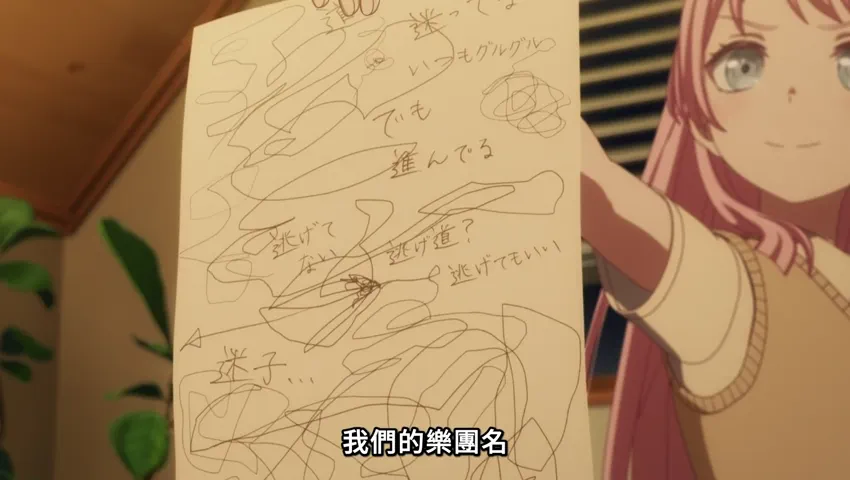 迷ってる
いつもグルグル
でも
進んでる
逃げて
ない
逃げ道?
逃げてもいい
迷子...
我們的樂團名